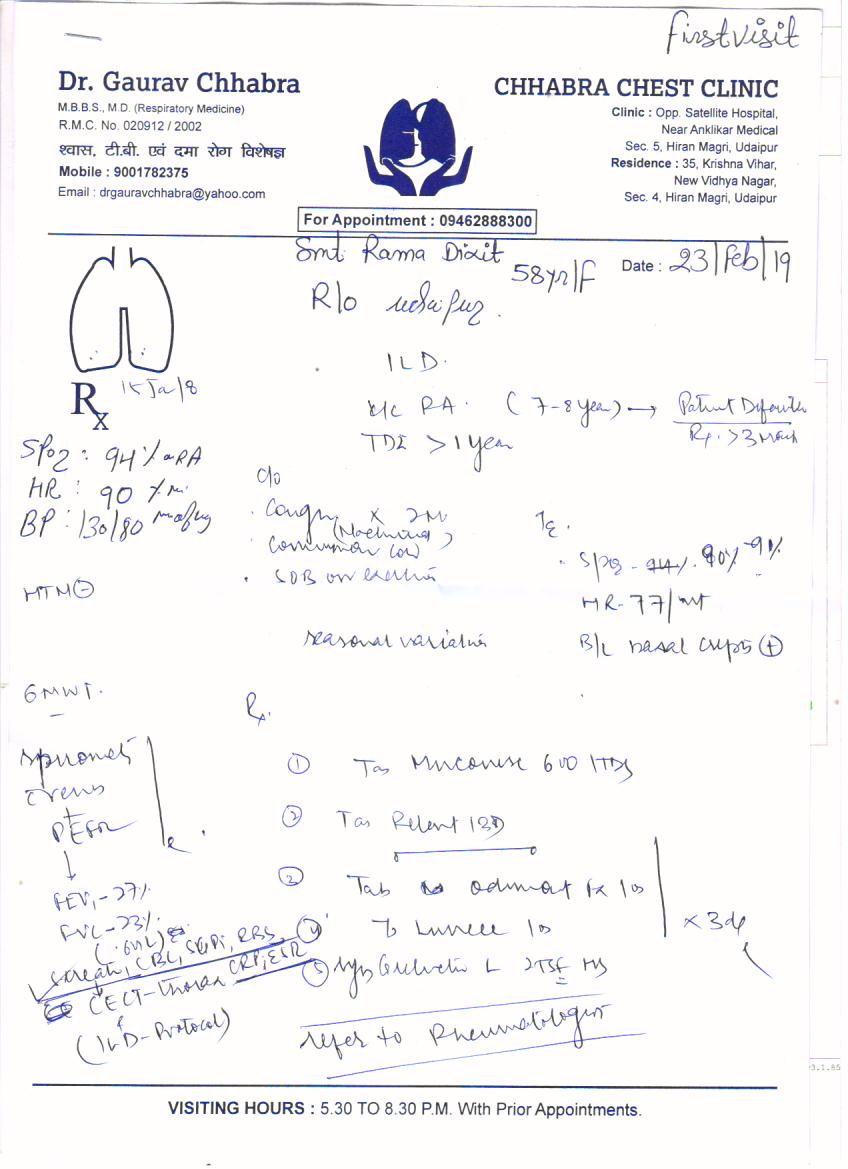 First visit
Dr. Gaurav Chhabra
M.B.B.S., M.D. (Respiratory Medicine)
R.M.C. No. 020912 / 2002
श्वास, टी.बी. एवं दमा रोग विशेषज्ञ
Mobile : 9001782375
Email : drgauravchhabra@yahoo.com
CHHABRA CHEST CLINIC
Clinic : Opp. Satellite Hospital,
Near Anklikar Medical
Sec. 5, Hiran Magri, Udaipur
Residence : 35, Krishna Vihar,
New Vidhya Nagar,
Sec. 4, Hiran Magri, Udaipur
For Appointment : 09462888300
Smt Rama Dixit 58yr/F
Date : 23/Feb/19
R/o Udaipur
ILD
Rx
K/C RA (7-8 year) → Patient Defaulter
Rx >3 Month
TDI >1 year
SPO2 : 94% RA
HR : 90
BP : 130/80 mm of Hg
C/o
Cough x 2M
SOB on exertion
HTN -
O/E
SpO2 - 94% 90% - 91%
HR - 77/mt
seasonal variation
B/L basal creps +
6 MWT
Rx
Spirometry
PEFR
① Tab Mucowise 600 1TDS
② Tab Relent 1BD
FEV1 - 27%
FVC - 23%
x 3d
CRP, ESR
CECT - Thorax
(ILD - Protocol)
refer to Rheumatologist
VISITING HOURS : 5.30 TO 8.30 P.M. With Prior Appointments.
3.1.85